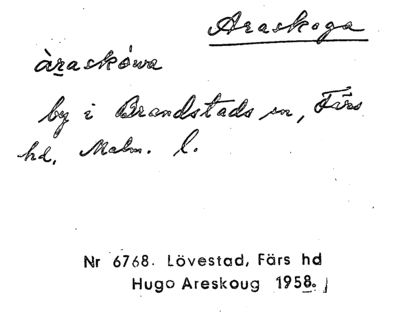 Araskoga
àraskówa
by i Brandstads sn, Färs
hd, Malm. l.
Nr 6768. Lövestad, Färs hd
Hugo Areskoug 1958.